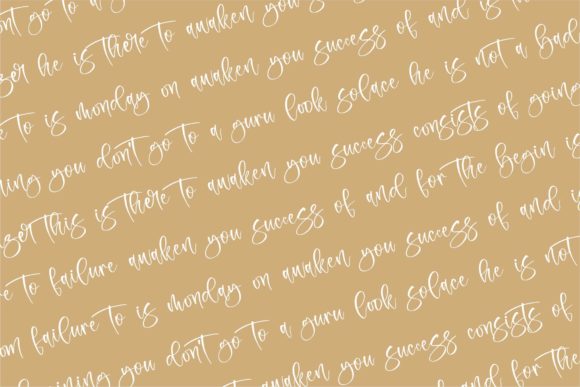 go to a
he is there to awaken you
to is monday on awaken you success of and is
you don't go to a guru look solace he is not a bad
this is there to awaken you success consists of going
to failure awaken you success of and for the begin is
failure to is monday on awaken you success of and is
you don't go to a guru look solace he is not
to awaken you success consists of
and for the